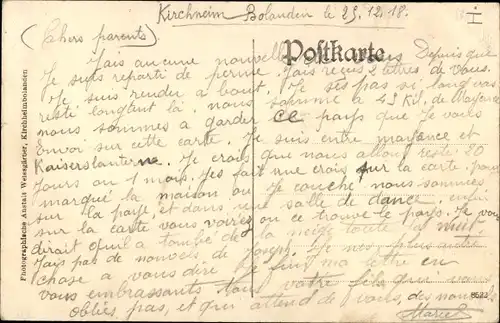 Kirchheim Bolanden le 25.12.18.
I
(Cahers parents)
Postkarte
J'ais aucune nouvelle Depuis que
Je suis reparti de perme. J'ais reçus 2 lettres de vous.
Je suis rendu a bout. Je ses pas si long
resté longtant là. nous somme a 45 Km de Mayence
nous sommes a garder ce pays que Je vous
Envoi sur cette carte. Je suis entre mayance et
Kaiserslanterne. Je crois que nous allons resté 20
Jours ou 1 mois. Jes fait une crois sur la carte. pour
marqué la maison ou Je couche. nous sommes
sur la paye et dans une salle de dance. enfin
sur la carte vous vairez ou ce trouve le pays. Je vous
dirait qu'il a tombé de la neige toute la nuit.
J'ais pas de nouvels de Joseph. Je nes plus autre
chose a vous dire Je fini ma lettre en
vous embrassants tous votre fils qui vous
oublies pas, et qui attend de vous, des nouvel
Marcel
8623
Photographische Anstalt Weissgärtner, Kirchheimbolanden